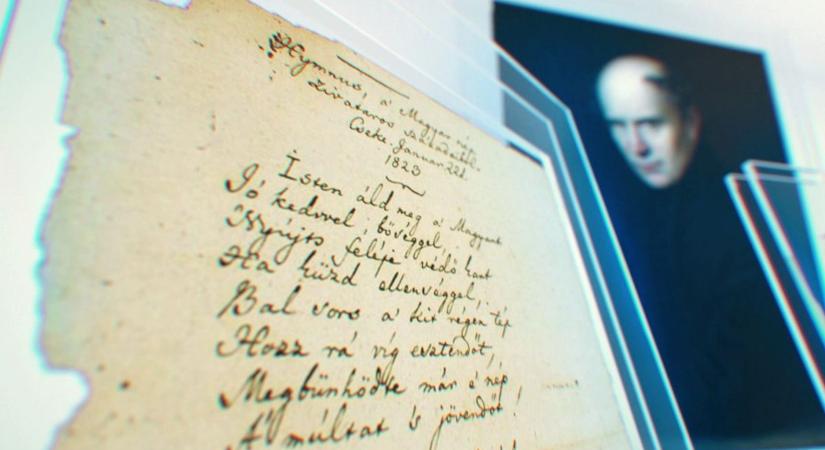 Hymnus, a' Magyar nép
zivataros századaiból.
Cseke. Január 22d.
1823
Isten áld meg a' Magyart
Jó kedvvel, bőséggel,
Nyújts feléje védő kart
Ha küzd ellenséggel;
Bal sors a' kit régen tép
Hozz rá víg esztendőt,
Megbűnhödte már e' nép
A' múltat 's jövendőt!